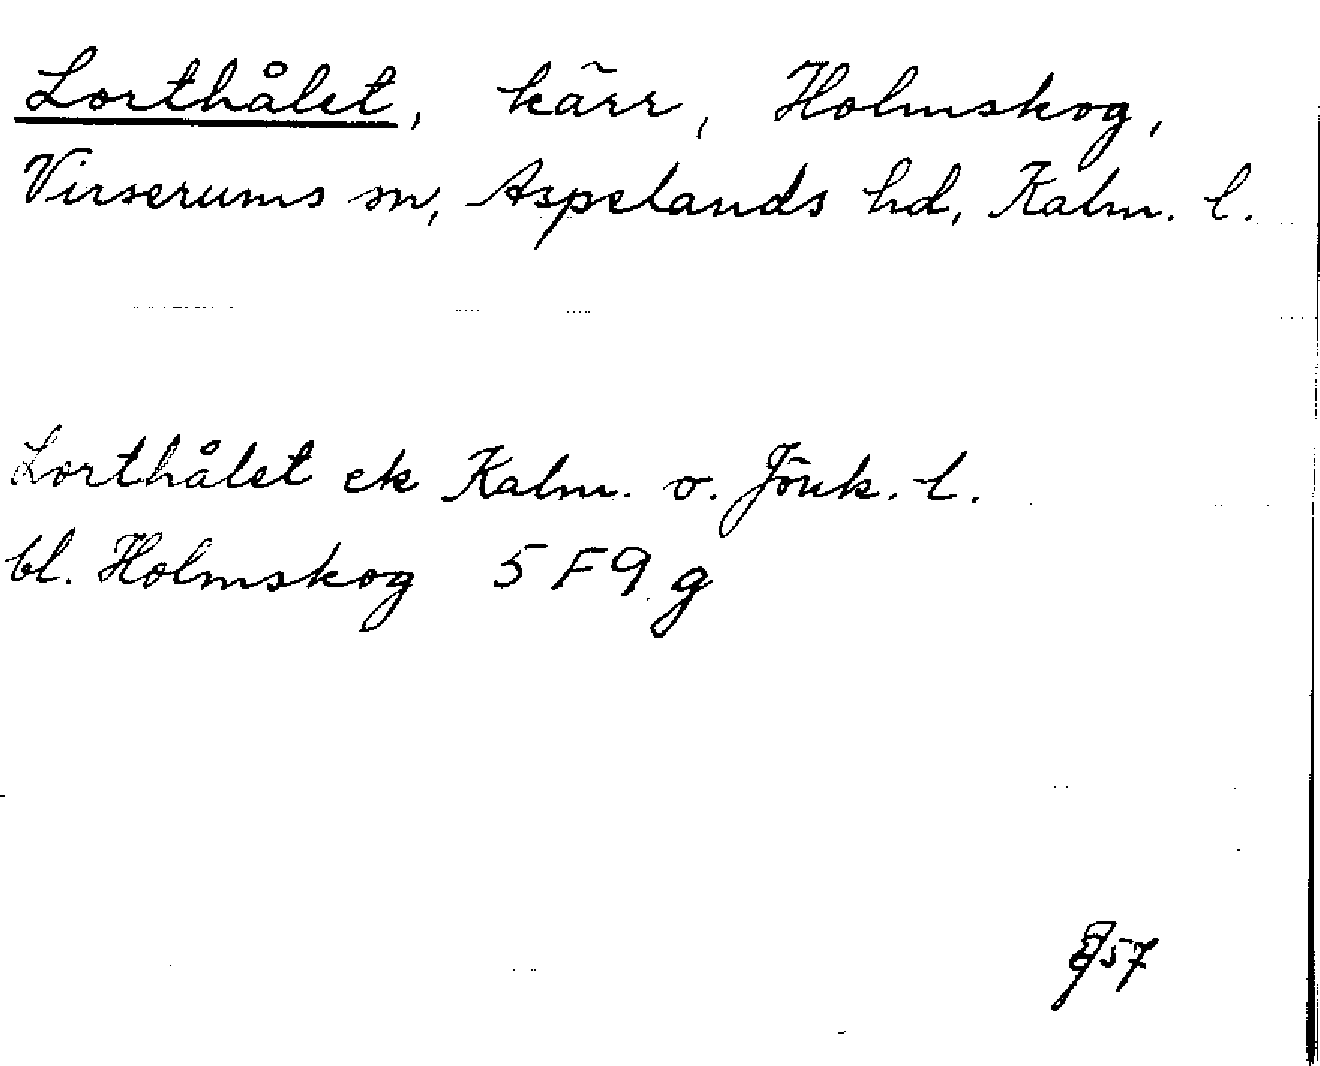 Lorthålet, kärr, Holmskog,
Virserums sn, Aspelands hd, Kalm. l.
Lorthålet ek Kalm. o. Jönk. l.
bl. Holmskog 5 F 9 g
57